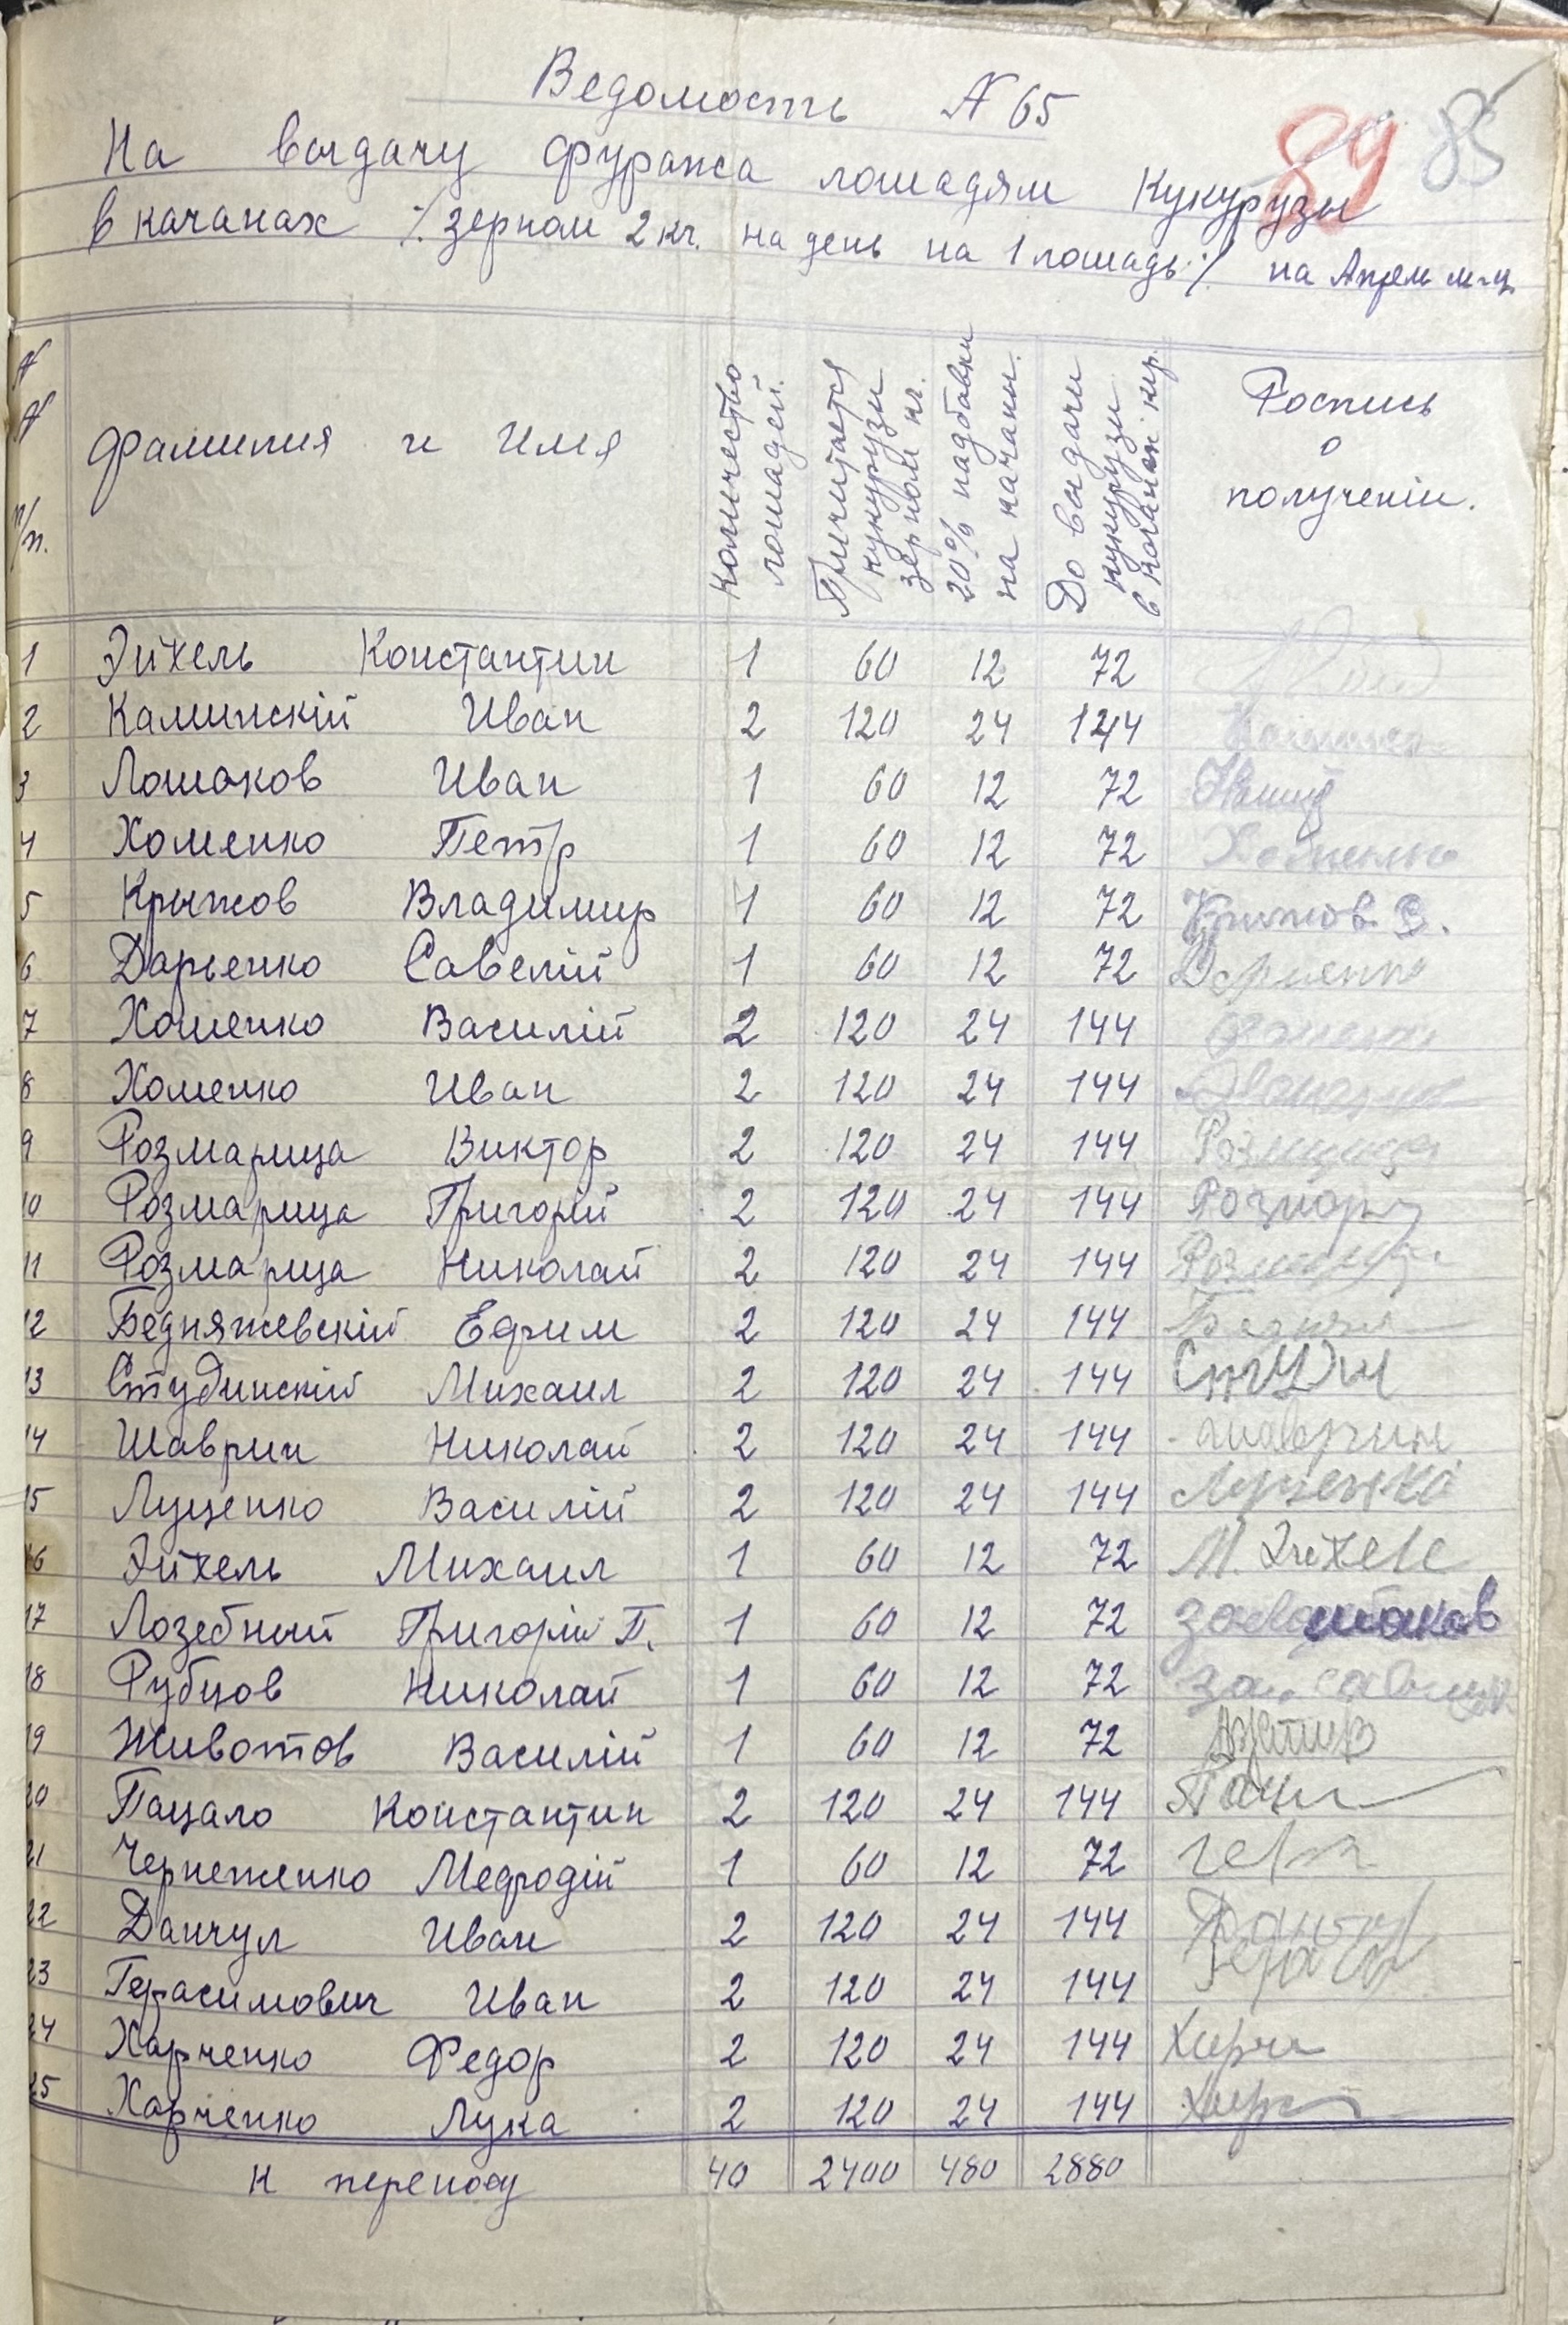 Ведомость № 65
89 85
На выдачу фуража лошадям Кукурузы
в качанах ./. зерном 2 кг. на день на 1 лошадь ./. на Апрель м-ц
№ № п/п. Фамилия и Имя Количество лошадей. Причитается кукурузы зерном кг. 20% надбавки на качаны. До выдачи кукурузы в качанах кгр. Роспись о получении.
1 Эйхель Константин 1 60 12 72
2 Каминскій Иван 2 120 24 144
3 Лошаков Иван 1 60 12 72
4 Хоменко Петр 1 60 12 72 Хоменко
5 Крыжов Владимир 1 60 12 72 Крыжов В.
6 Дарьенко Савелій 1 60 12 72 Дарьенко
7 Хоменко Василій 2 120 24 144
8 Хоменко Иван 2 120 24 144
9 Розмарица Виктор 2 120 24 144
10 Розмарица Григорій 2 120 24 144
11 Розмарица Николай 2 120 24 144
12 Бедняжевскій Ефим 2 120 24 144
13 Студинскій Михаил 2 120 24 144
14 Шаврин Николай 2 120 24 144 Шаврин
15 Луценко Василій 2 120 24 144 Луценко
16 Эйхель Михаил 1 60 12 72 М. Эйхель
17 Лозебный Григорій П. 1 60 12 72
18 Рубцов Николай 1 60 12 72
19 Животов Василій 1 60 12 72
20 Пацало Константин 2 120 24 144
21 Черненженко Мефодій 1 60 12 72
22 Данчул Иван 2 120 24 144
23 Герасимович Иван 2 120 24 144
24 Харченко Федор 2 120 24 144 Харч
25 Харченко Лука 2 120 24 144
К переносу 40 2400 480 2880